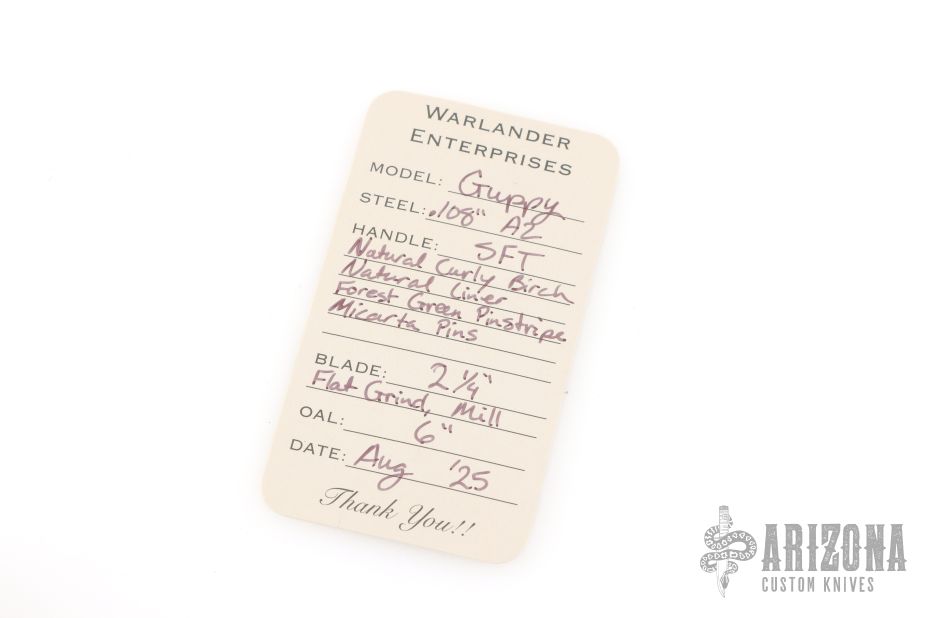 WARLANDER
ENTERPRISES
MODEL: Guppy
STEEL: .108" A2
HANDLE: SFT
Natural Curly Birch
Natural Liner
Forest Green Pinstripe
Micarta Pins
BLADE: 2 1/4"
Flat Grind, Mill
OAL: 6"
DATE: Aug '25
Thank You!!
ARIZONA
CUSTOM KNIVES